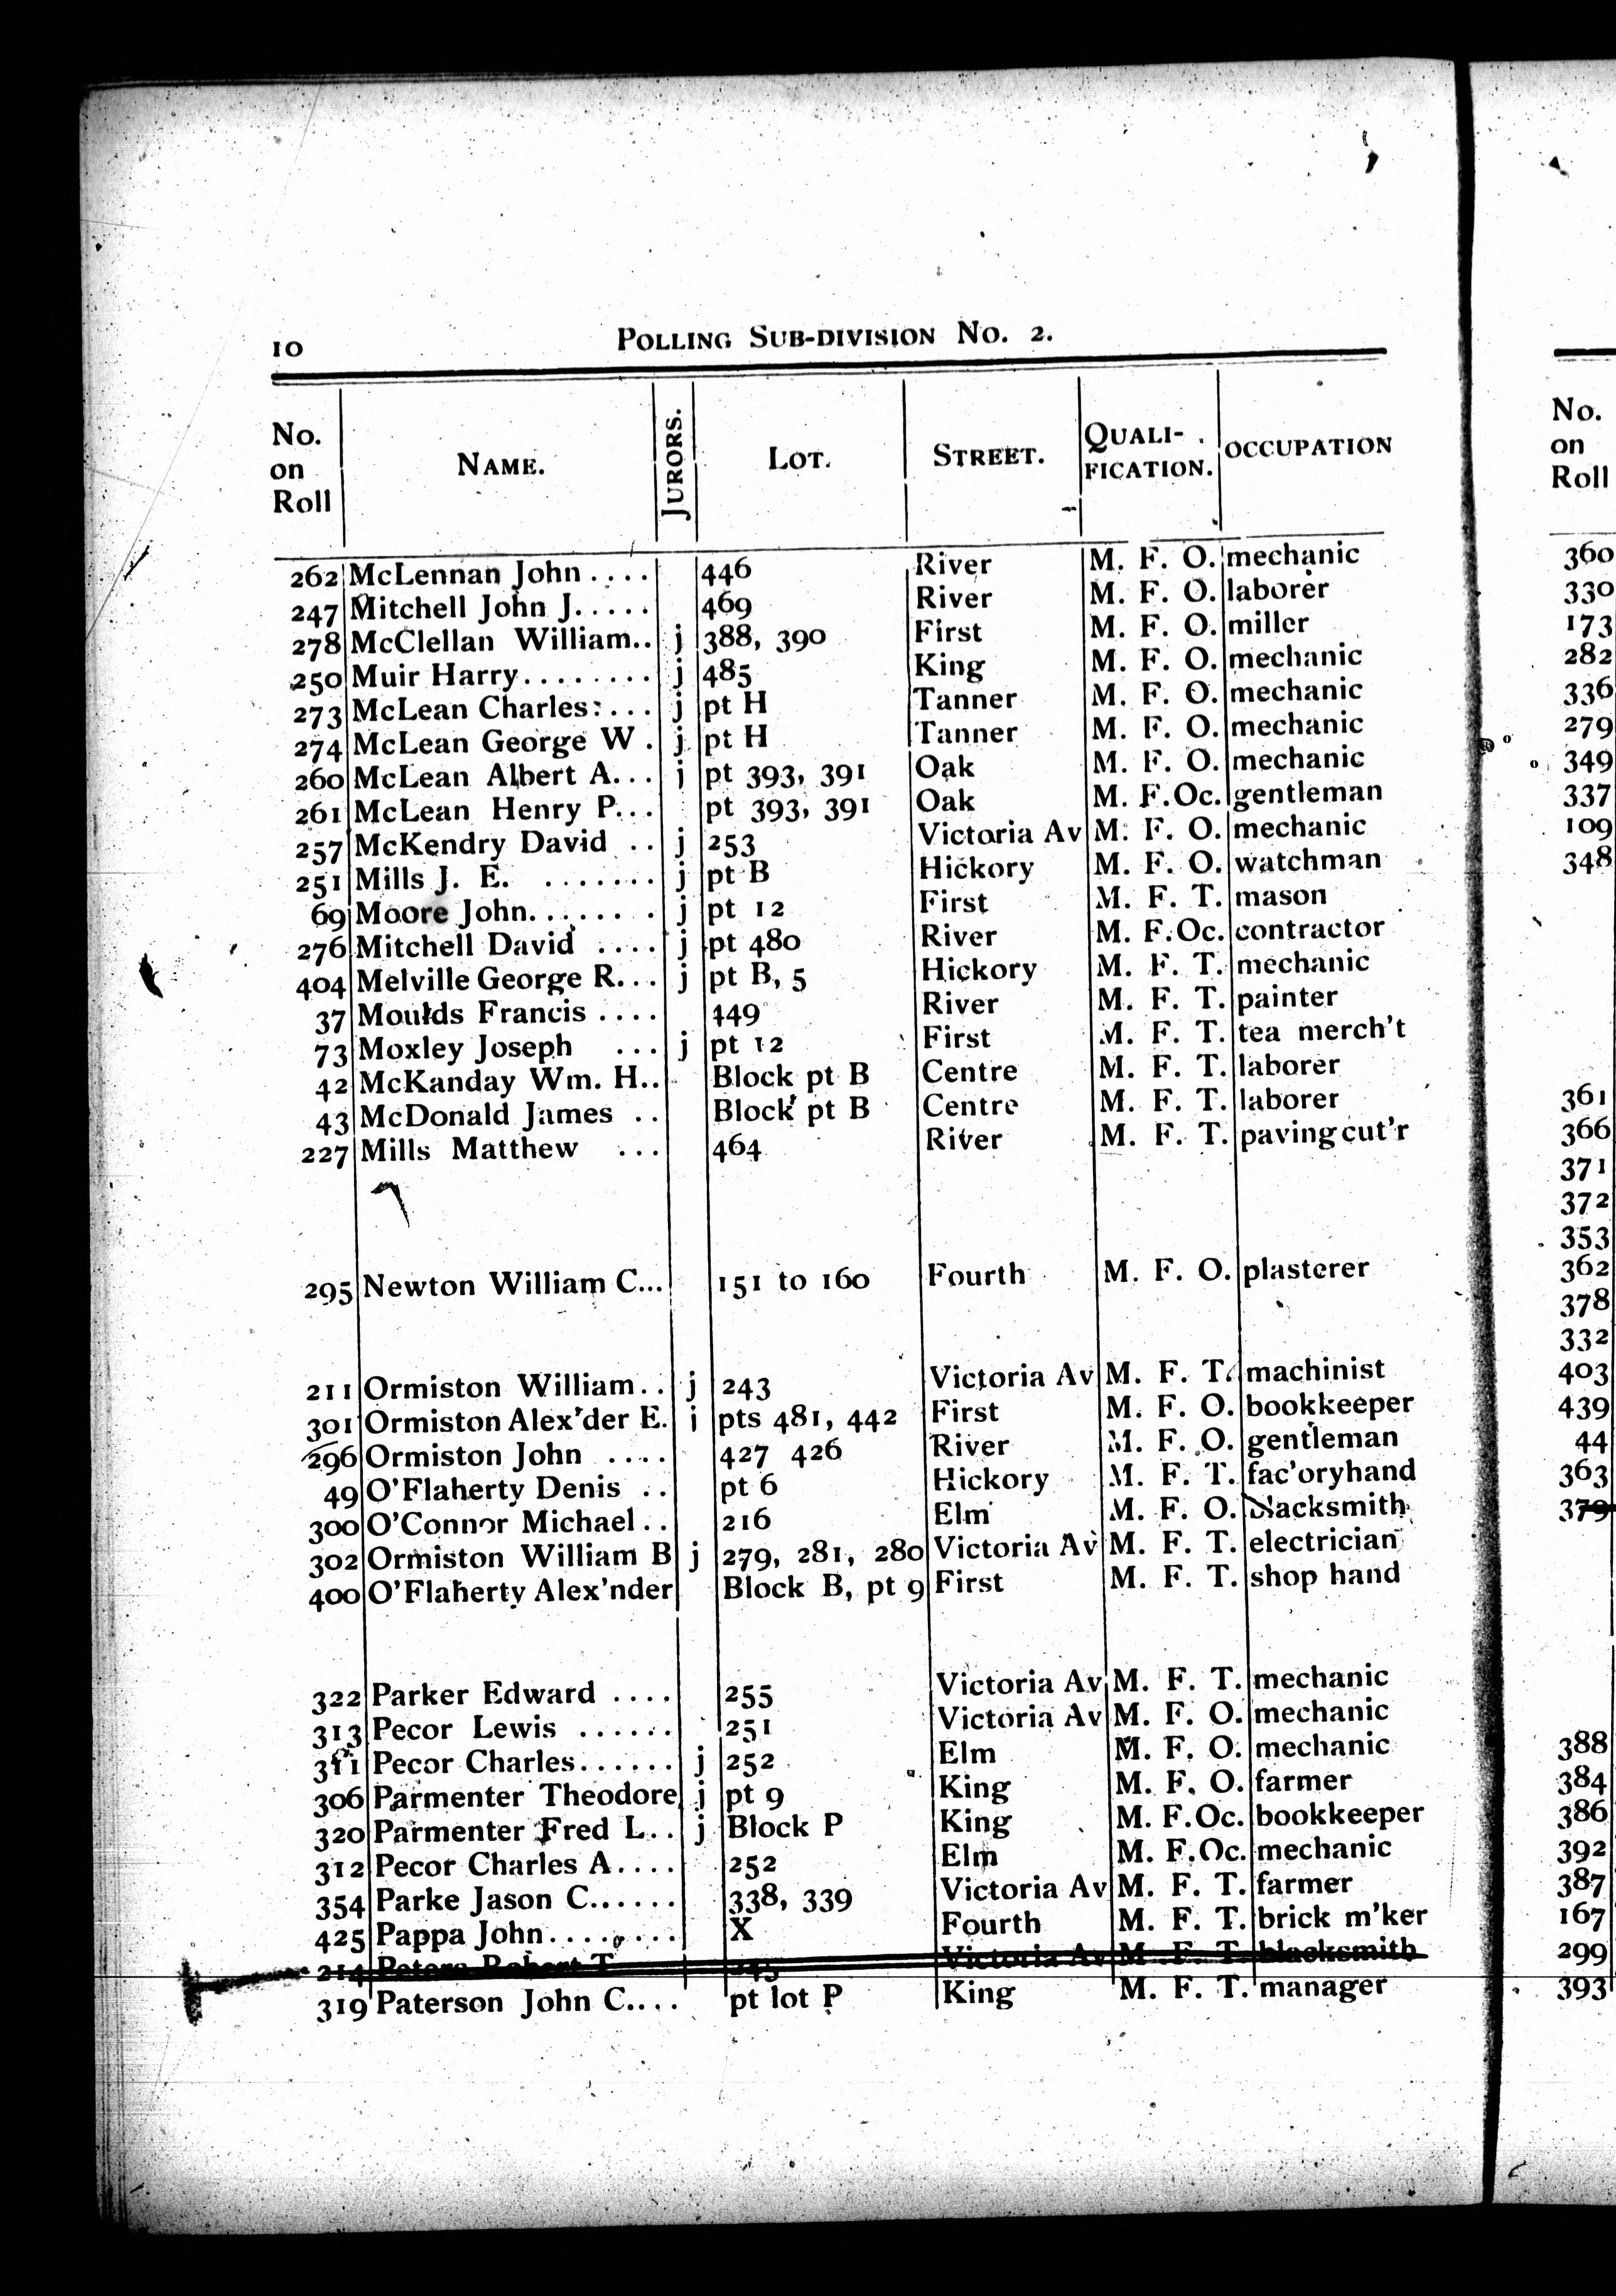 10 POLLING SUB-DIVISION No. 2.
No. on Roll NAME. JURORS. LOT. STREET. QUALI-FICATION. OCCUPATION
262 McLennan John .... 446 River M. F. O. mechanic
247 Mitchell John J..... 469 River M. F. O. laborer
278 McClellan William.. j 388, 390 First M. F. O. miller
250 Muir Harry........ j 485 King M. F. O. mechanic
273 McLean Charles.... j pt H Tanner M. F. O. mechanic
274 McLean George W . j pt H Tanner M. F. O. mechanic
260 McLean Albert A... j pt 393, 391 Oak M. F. O. mechanic
261 McLean Henry P... pt 393, 391 Oak M. F.Oc. gentleman
257 McKendry David .. j 253 Victoria Av M. F. O. mechanic
251 Mills J. E. ....... j pt B Hickory M. F. O. watchman
69 Moore John........ j pt 12 First M. F. T. mason
276 Mitchell David .... j pt 480 River M. F.Oc. contractor
404 Melville George R... j pt B, 5 Hickory M. F. T. mechanic
37 Moulds Francis .... 449 River M. F. T. painter
73 Moxley Joseph ... j pt 12 First M. F. T. tea merch't
42 McKanday Wm. H.. Block pt B Centre M. F. T. laborer
43 McDonald James .. Block pt B Centre M. F. T. laborer
227 Mills Matthew ... 464 River M. F. T. paving cut'r
295 Newton William C... 151 to 160 Fourth M. F. O. plasterer
211 Ormiston William.. j 243 Victoria Av M. F. T. machinist
301 Ormiston Alex'der E. i pts 481, 442 First M. F. O. bookkeeper
296 Ormiston John .... 427 426 River M. F. O. gentleman
49 O'Flaherty Denis .. pt 6 Hickory M. F. T. fac'oryhand
300 O'Connor Michael.. 216 Elm M. F. O. blacksmith
302 Ormiston William B j 279, 281, 280 Victoria Av M. F. T. electrician
400 O'Flaherty Alex'nder Block B, pt 9 First M. F. T. shop hand
322 Parker Edward .... 255 Victoria Av M. F. T. mechanic
313 Pecor Lewis ...... 251 Victoria Av M. F. O. mechanic
311 Pecor Charles...... j 252 Elm M. F. O. mechanic
306 Parmenter Theodore j pt 9 King M. F. O. farmer
320 Parmenter Fred L.. j Block P King M. F.Oc. bookkeeper
312 Pecor Charles A.... 252 Elm M. F.Oc. mechanic
354 Parke Jason C...... 338, 339 Victoria Av M. F. T. farmer
425 Pappa John........ X Fourth M. F. T. brick m'ker
214 Peters Robert T 245 Victoria Av M. F. T. blacksmith
319 Paterson John C.... pt lot P King M. F. T. manager
No.
on
Roll
360
330
173
282
336
279
349
337
109
348
361
366
371
372
353
362
378
332
403
439
44
363
379
388
384
386
392
387
167
299
393